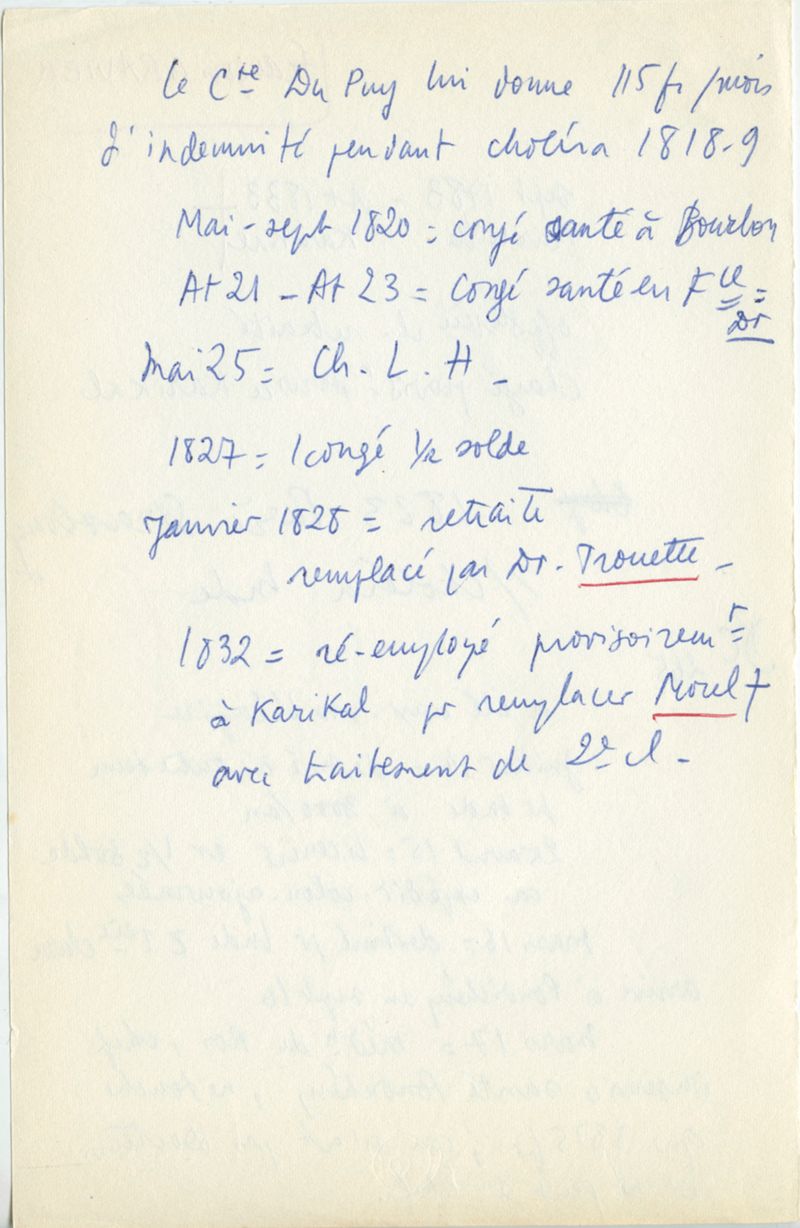 Le Cte Du Puy lui donne 115 fr/mois
d'indemnité pendant choléra 1818-9
Mai - sept 1820 = congé santé à Bourbon
At 21 - At 23 = Congé santé en Fce =
Dr
Mai 25 = Ch. L. H -
1827 = 1 congé 1/2 solde
Janvier 1828 = retraite
remplacé par Dr. Trouette -
1832 = ré-employé provisoiremt =
à Karikal pr remplacer Morel †
avec traitement de 2e cl -